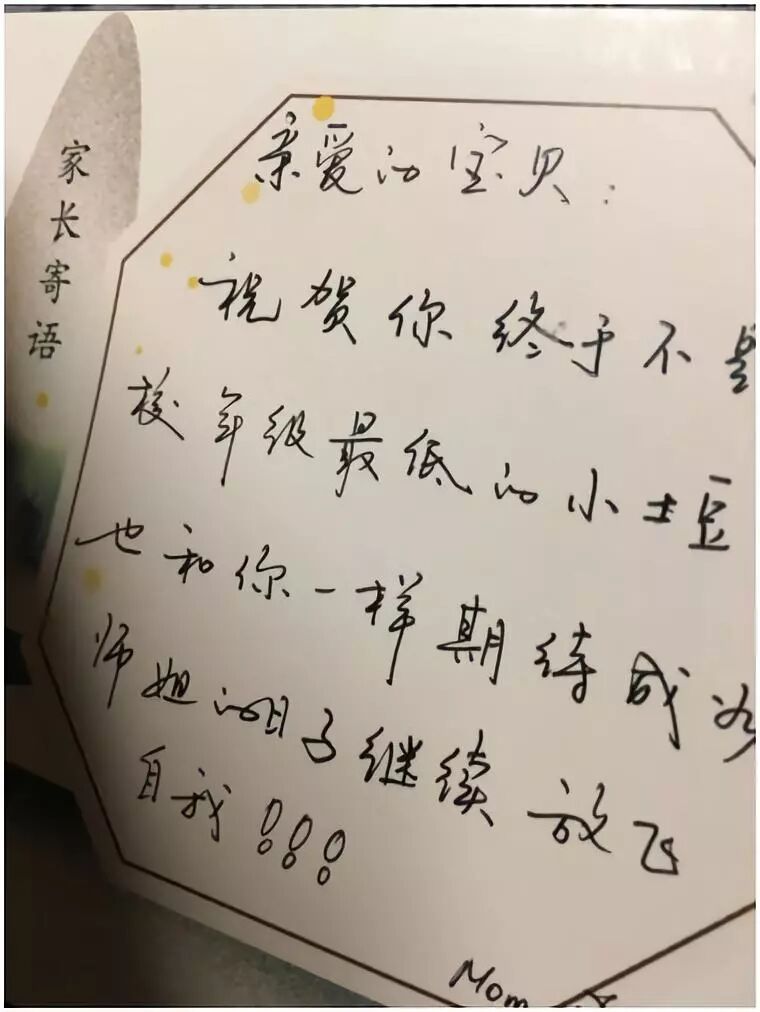 家长寄语
亲爱的宝贝：
祝贺你终于不是
校年级最低的小土豆
也和你一样期待成为
师姐的日子继续放飞
自我!!!
Mom